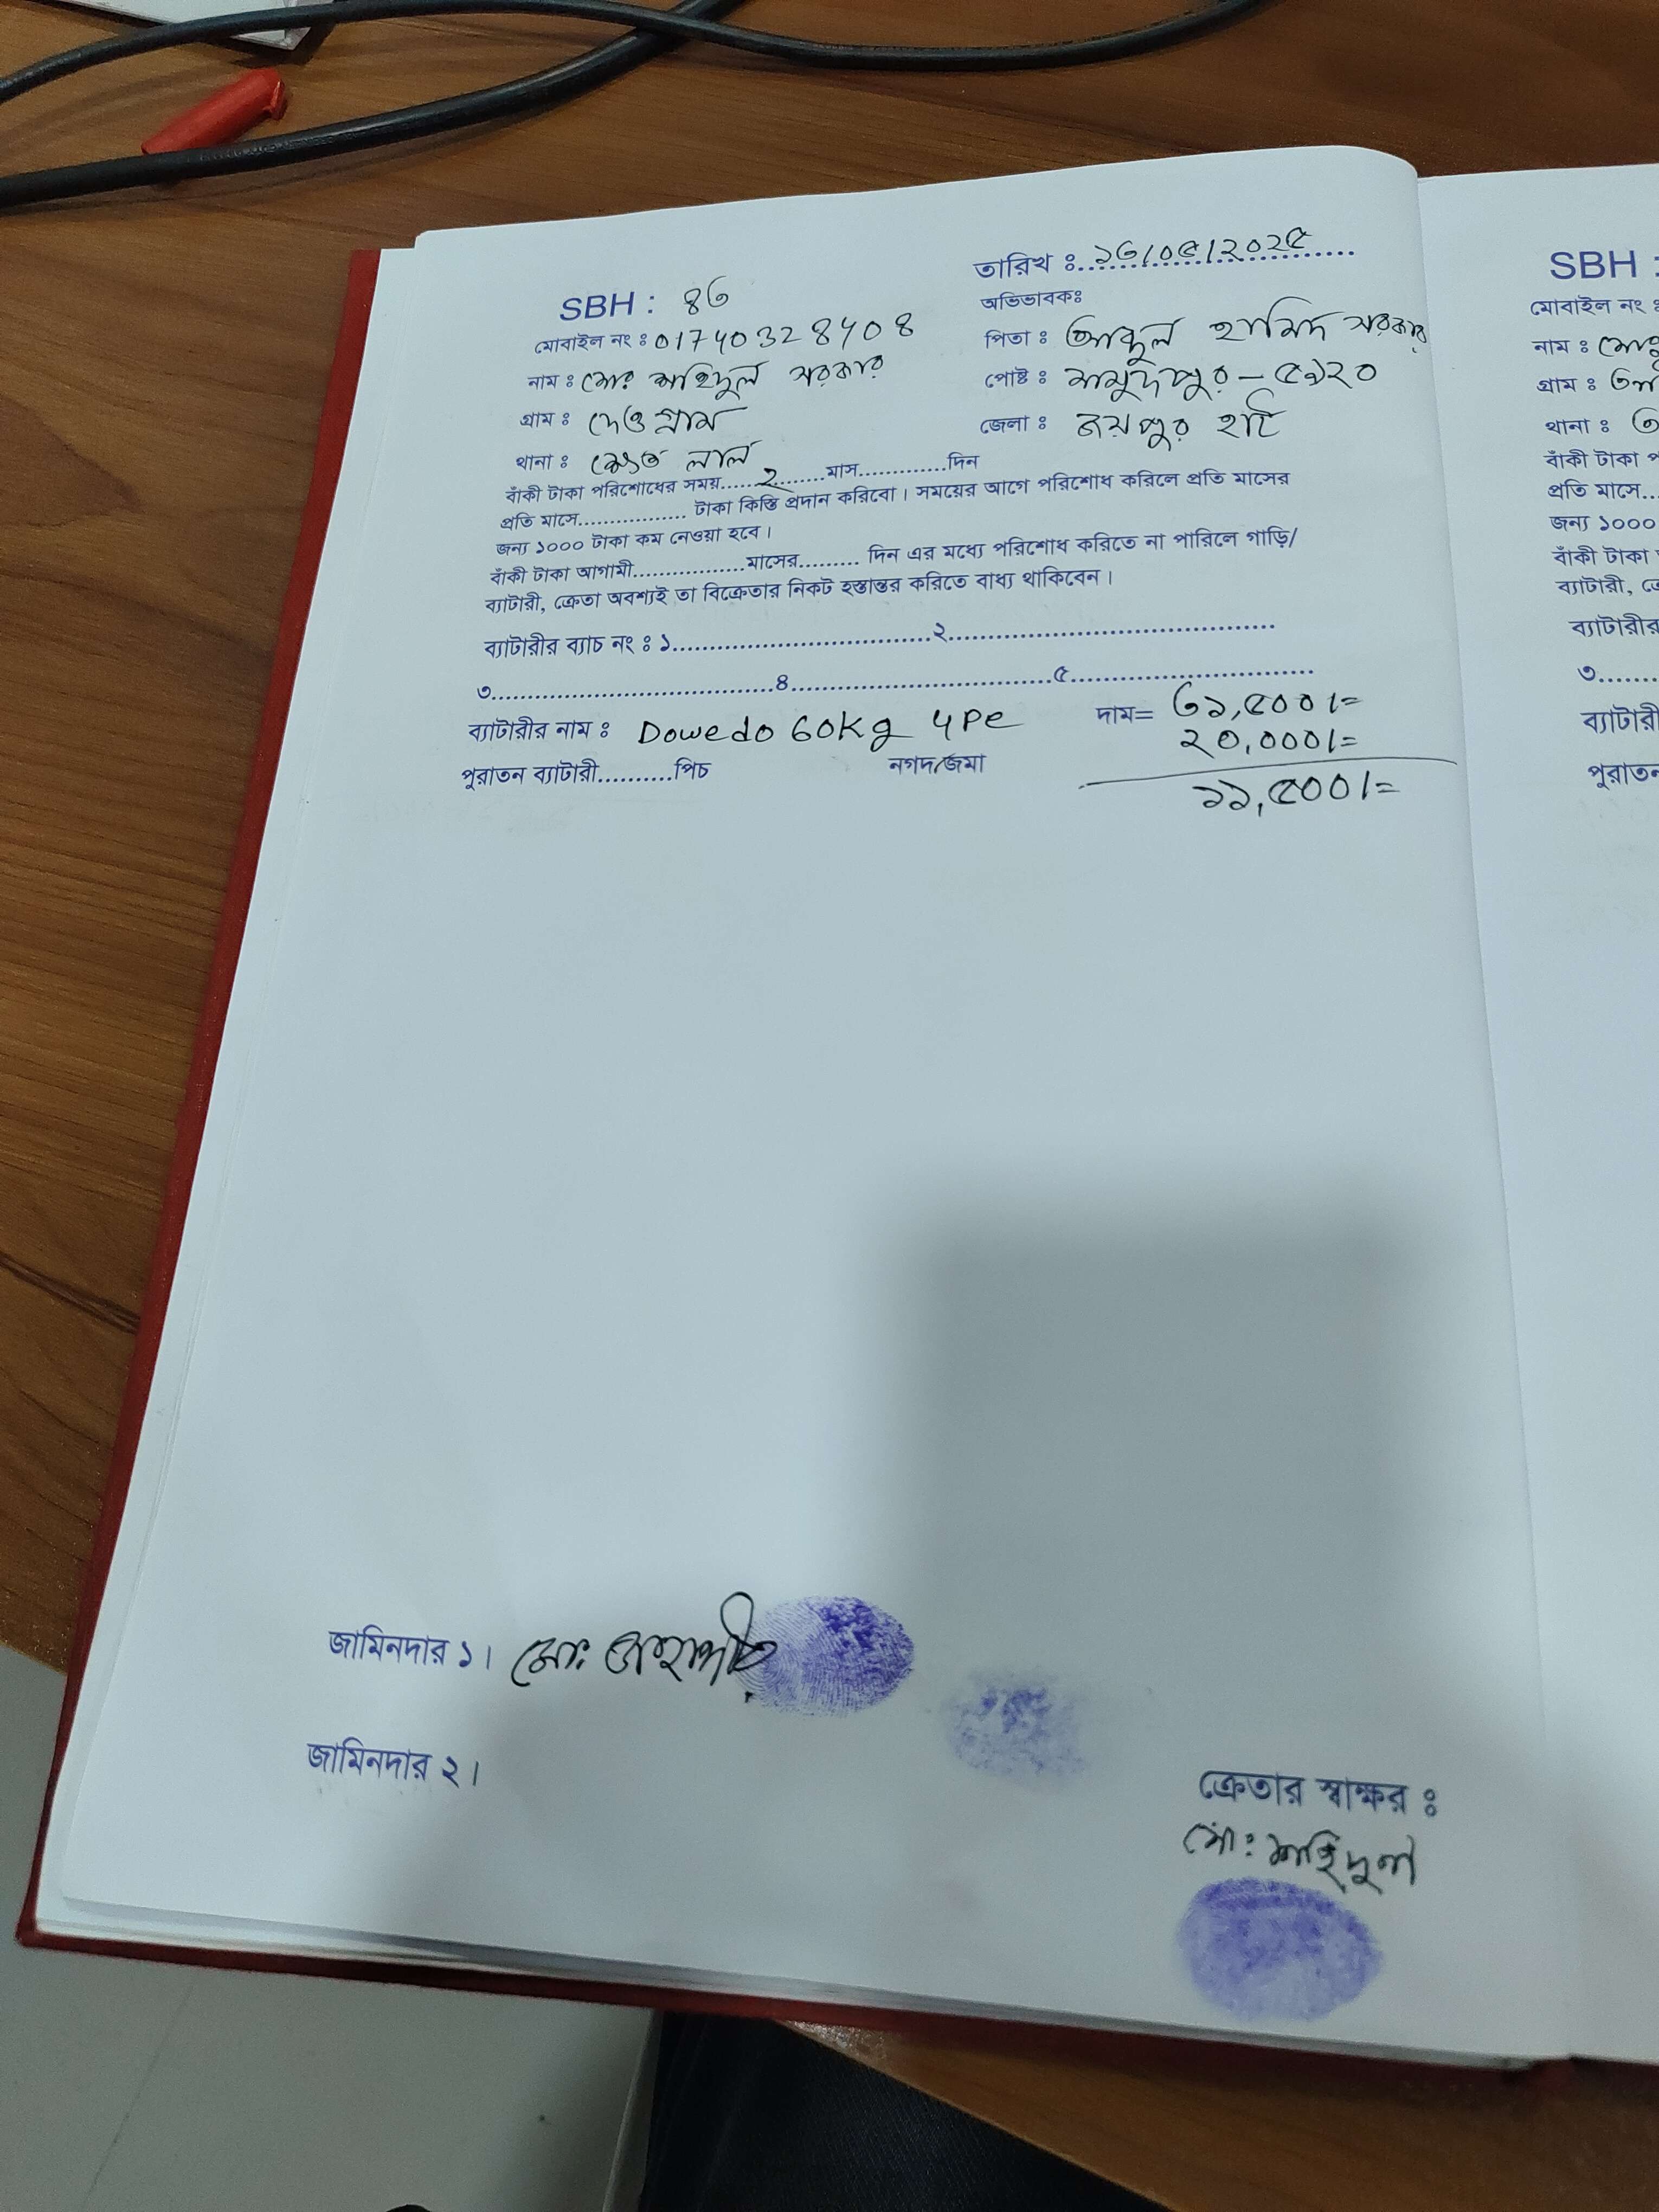 তারিখ ঃ ১৩/০৫/২০২৫
SBH : ৪৩
অভিভাবকঃ
মোবাইল নং ঃ 01740328408
পিতা ঃ আব্দুল হামিদ সরকার
নাম ঃ মোঃ শহিদুল সরকার
পোষ্ট ঃ মামুদপুর – ৫৯২০
গ্রাম ঃ দেওগ্রাম
জেলা ঃ জয়পুর হাট
থানা ঃ ক্ষেত লাল
বাঁকী টাকা পরিশোধের সময়......২........মাস.............দিন
প্রতি মাসে................. টাকা কিস্তি প্রদান করিবো। সময়ের আগে পরিশোধ করিলে প্রতি মাসের
জন্য ১০০০ টাকা কম নেওয়া হবে।
বাঁকী টাকা আগামী.................মাসের......... দিন এর মধ্যে পরিশোধ করিতে না পারিলে গাড়ি/
ব্যাটারী, ক্রেতা অবশ্যই তা বিক্রেতার নিকট হস্তান্তর করিতে বাধ্য থাকিবেন।
ব্যাটারীর ব্যাচ নং ঃ ১.........................................২....................................................
৩.............................................৪.........................................৫.......................................
ব্যাটারীর নাম ঃ Dowedo 60Kg 4Pe
দাম= ৩১,৫০০/=
২০,০০০/=
পুরাতন ব্যাটারী..........পিচ
নগদ/জমা
১১,৫০০/=
জামিনদার ১। মোঃ
জামিনদার ২।
ক্রেতার স্বাক্ষর ঃ
মোঃ শহিদুল
SBH :
মোবাইল নং ঃ
নাম ঃ
গ্রাম ঃ
থানা ঃ
বাঁকী টাকা
প্রতি মাসে...
জন্য ১০০০
বাঁকী টাকা
ব্যাটারী,
ব্যাটারীর
৩......
ব্যাটারী
পুরাতন